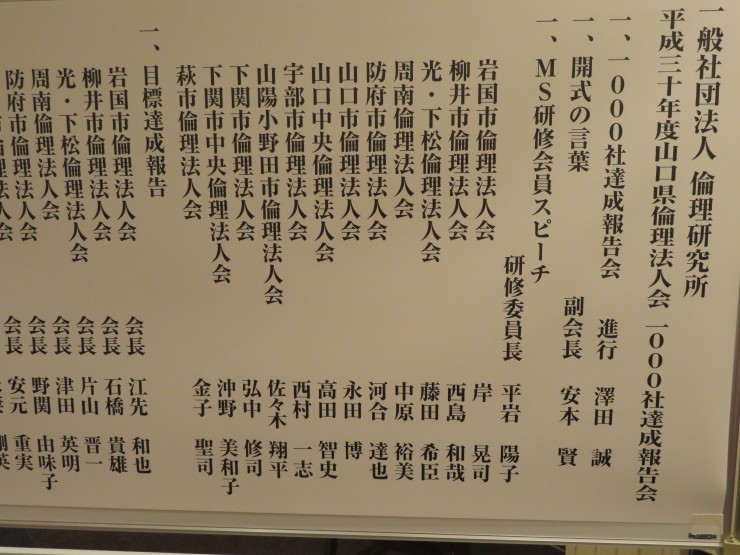 一般社団法人 倫理研究所
平成三十年度山口県倫理法人会 一〇〇〇社達成報告会
一、一〇〇〇社達成報告会 進行 澤田 誠
一、開式の言葉 副会長 安本 賢
一、MS研修会員スピーチ
研修委員長 平岩 陽子
岩国市倫理法人会 岸 晃司
柳井市倫理法人会 西島 和哉
光・下松倫理法人会 藤田 希臣
周南倫理法人会 中原 裕美
防府市倫理法人会 河合 達也
山口市倫理法人会 永田 博
山口中央倫理法人会 高田 智史
宇部市倫理法人会 西村 一志
山陽小野田市倫理法人会 佐々木 翔平
下関市倫理法人会 弘中 修司
下関市中央倫理法人会 沖野 美和子
萩市倫理法人会 金子 聖司
一、目標達成報告
岩国市倫理法人会 会長 江先 和也
柳井市倫理法人会 会長 石橋 貴雄
光・下松倫理法人会 会長 片山 晋一
周南倫理法人会 会長 津田 英明
防府市倫理法人会 会長 野関 由味子
会長 安元 重実